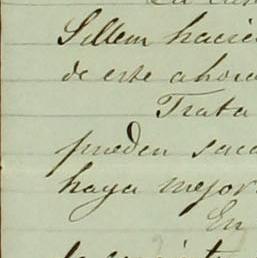 Sillem hacie
de este ahora
Trata
pueden saca
haya mejor
En